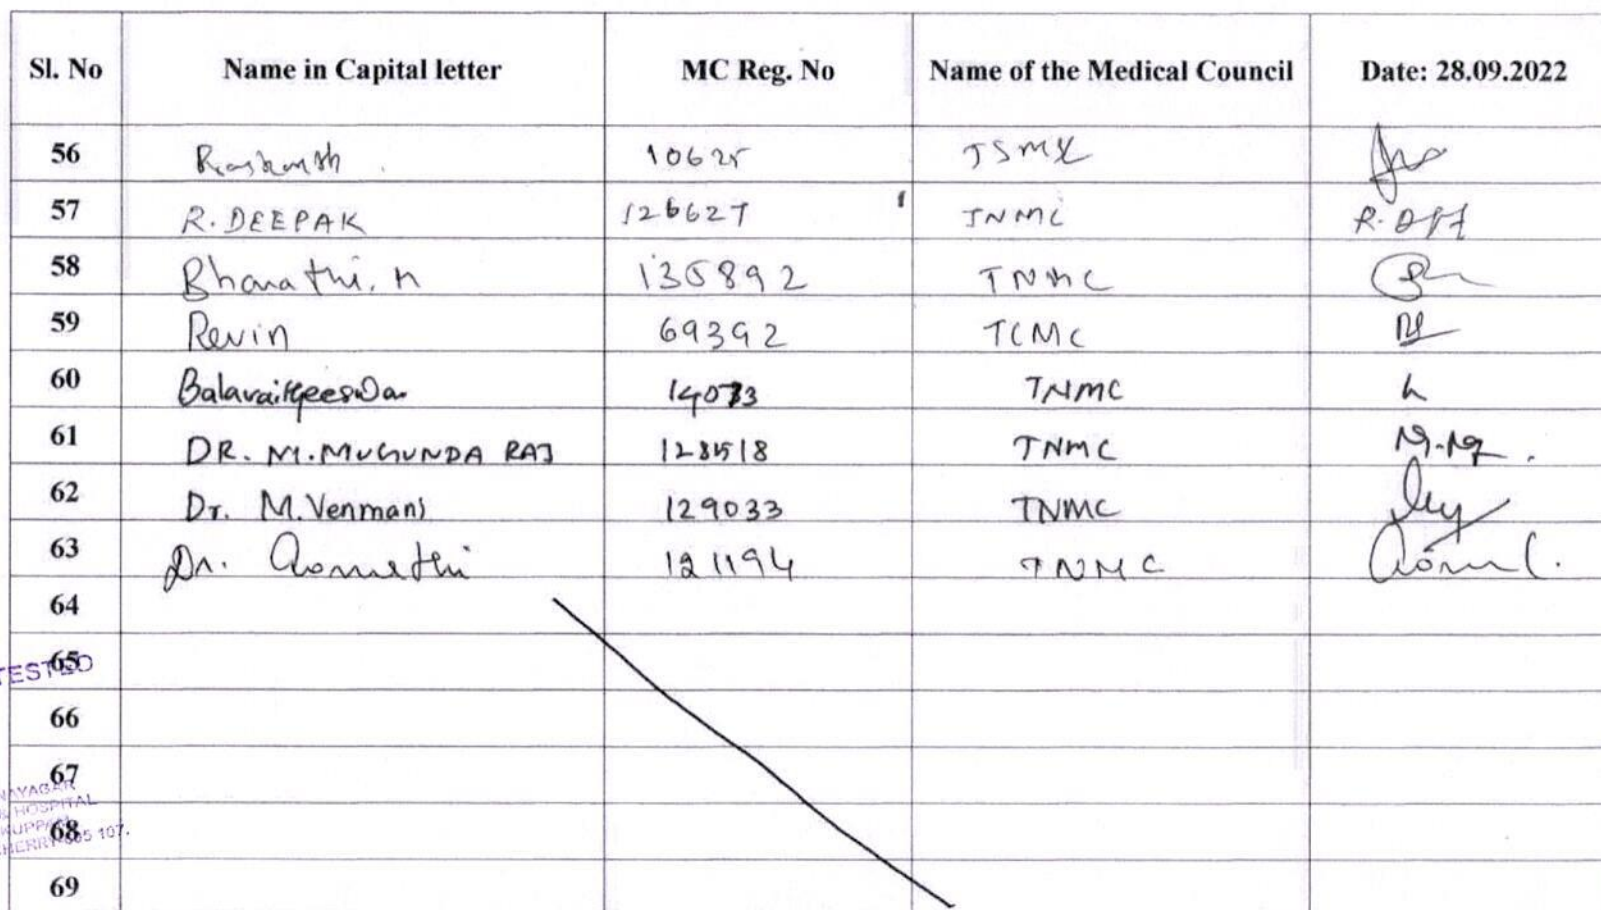 Sl. No Name in Capital letter MC Reg. No Name of the Medical Council Date: 28.09.2022
56 10625
57 R. DEEPAK 126627 TNMC R.
58 Bharathi. n 135892 TNMC
59 Revin 69392 TCMC
60 TNMC
61 DR. M. MUGUNDA RAJ 128518 TNMC
62 Dr. M. Venmani 129033 TNMC
63 Dr. 121194 TNMC
64
65
TESTED
66
67
NAYAGAR
& HOSPITAL
68
KUPPAM
HERRY-605 107.
69